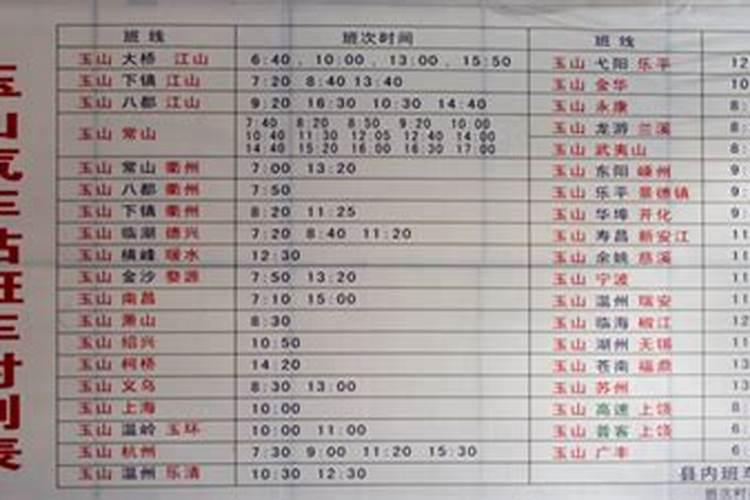 玉山汽车站班车时刻表
班 线 班次时间
玉山 大桥 江山 6:40 . 10:00 . 13:00 . 15:50
玉山 下镇 江山 7:20 8:40 13:40
玉山 八都 江山 9:20 16:30 10:30 14:40
玉山 常山 7:40 8:20 8:50 9:20 10:00
10:40 11:30 12:05 12:40 14:00
14:40 15:20 16:00 16:30 17:00
玉山 常山 衢州 7:00 13:20
玉山 八都 衢州 7:50
玉山 下镇 衢州 8:20 11:25
玉山 临湖 德兴 7:20 8:40 11:20
玉山 横峰 暖水 12:30
玉山 金沙 婺源 7:50 13:20
玉山 南昌 7:10 15:00
玉山 萧山 8:30
玉山 绍兴 10:50
玉山 柯桥 14:20
玉山 义乌 8:30 13:00
玉山 上海 10:00
玉山 温岭 玉环 10:00 11:00
玉山 杭州 7:30 9:00 11:20 15:30
玉山 温州 乐清 10:30 12:30
班 线
玉山 弋阳 乐平 12
玉山 金华 10
玉山 永康 8:
玉山 龙游 兰溪 8:
玉山 武夷山 8:
玉山 东阳 嵊州 9:
玉山 乐平 景德镇 9:
玉山 华埠 开化 9:
玉山 寿昌 新安江 11
玉山 余姚 慈溪 11
玉山 宁波 11
玉山 温州 瑞安 11
玉山 临海 椒江 12
玉山 湖州 无锡 11
玉山 苍南 福鼎 13
玉山 苏州 13
玉山 高速 上饶 8:
玉山 普客 上饶 6:
玉山 广丰 6:
县内班车